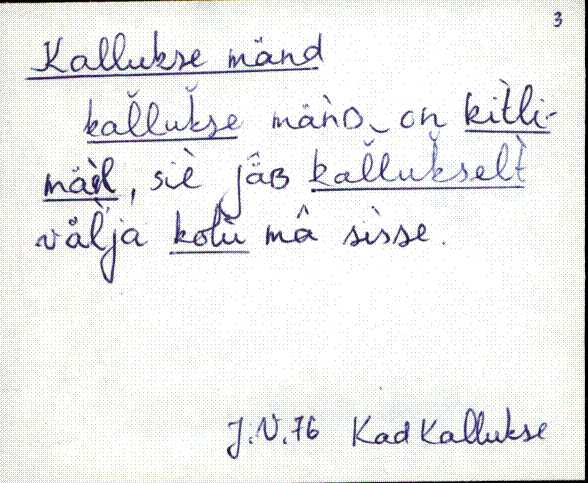 3
Kallukse mänd
kal̆lŭkse mäǹD on kìtli-
mäèl, siè jâB kal̆lŭkselt̀
vàlja kolù mâ sìsse.
J.V.76 Kad Kallukse